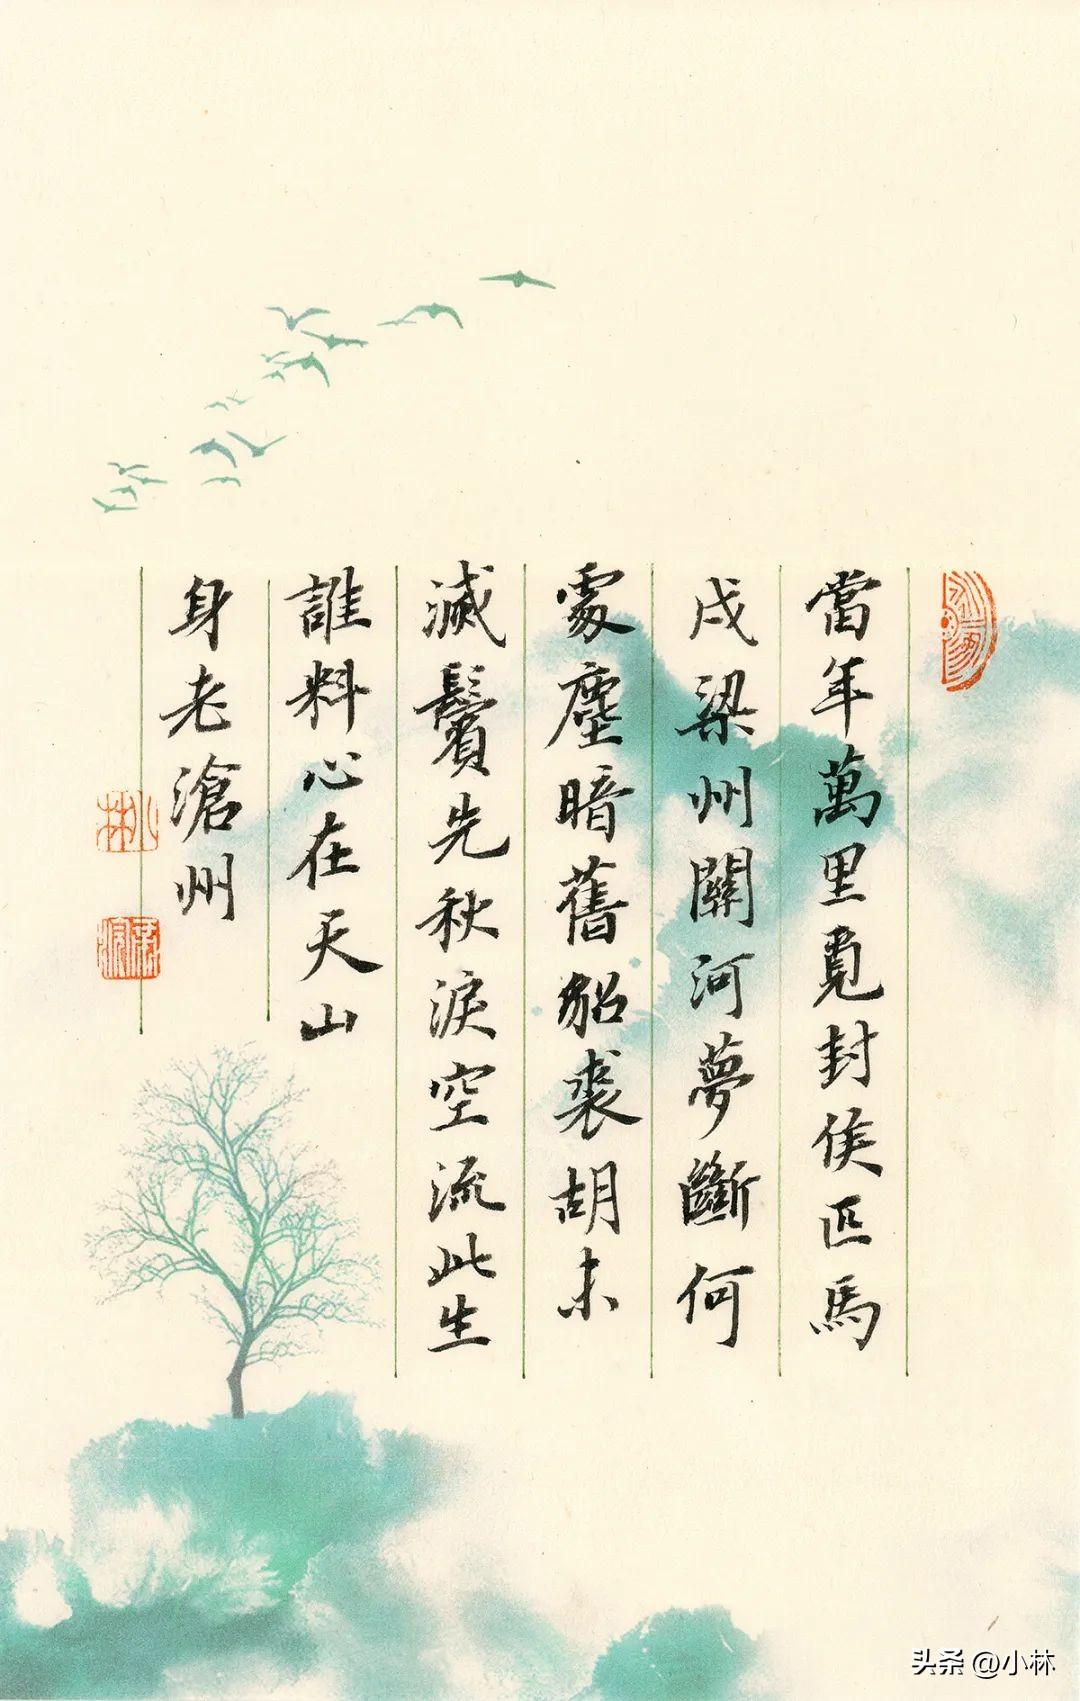 當年萬里覓封侯匹馬
戍梁州關河夢斷何
處塵暗舊貂裘胡未
滅鬢先秋淚空流此生
誰料心在天山
身老滄州
小林
头条 @小林